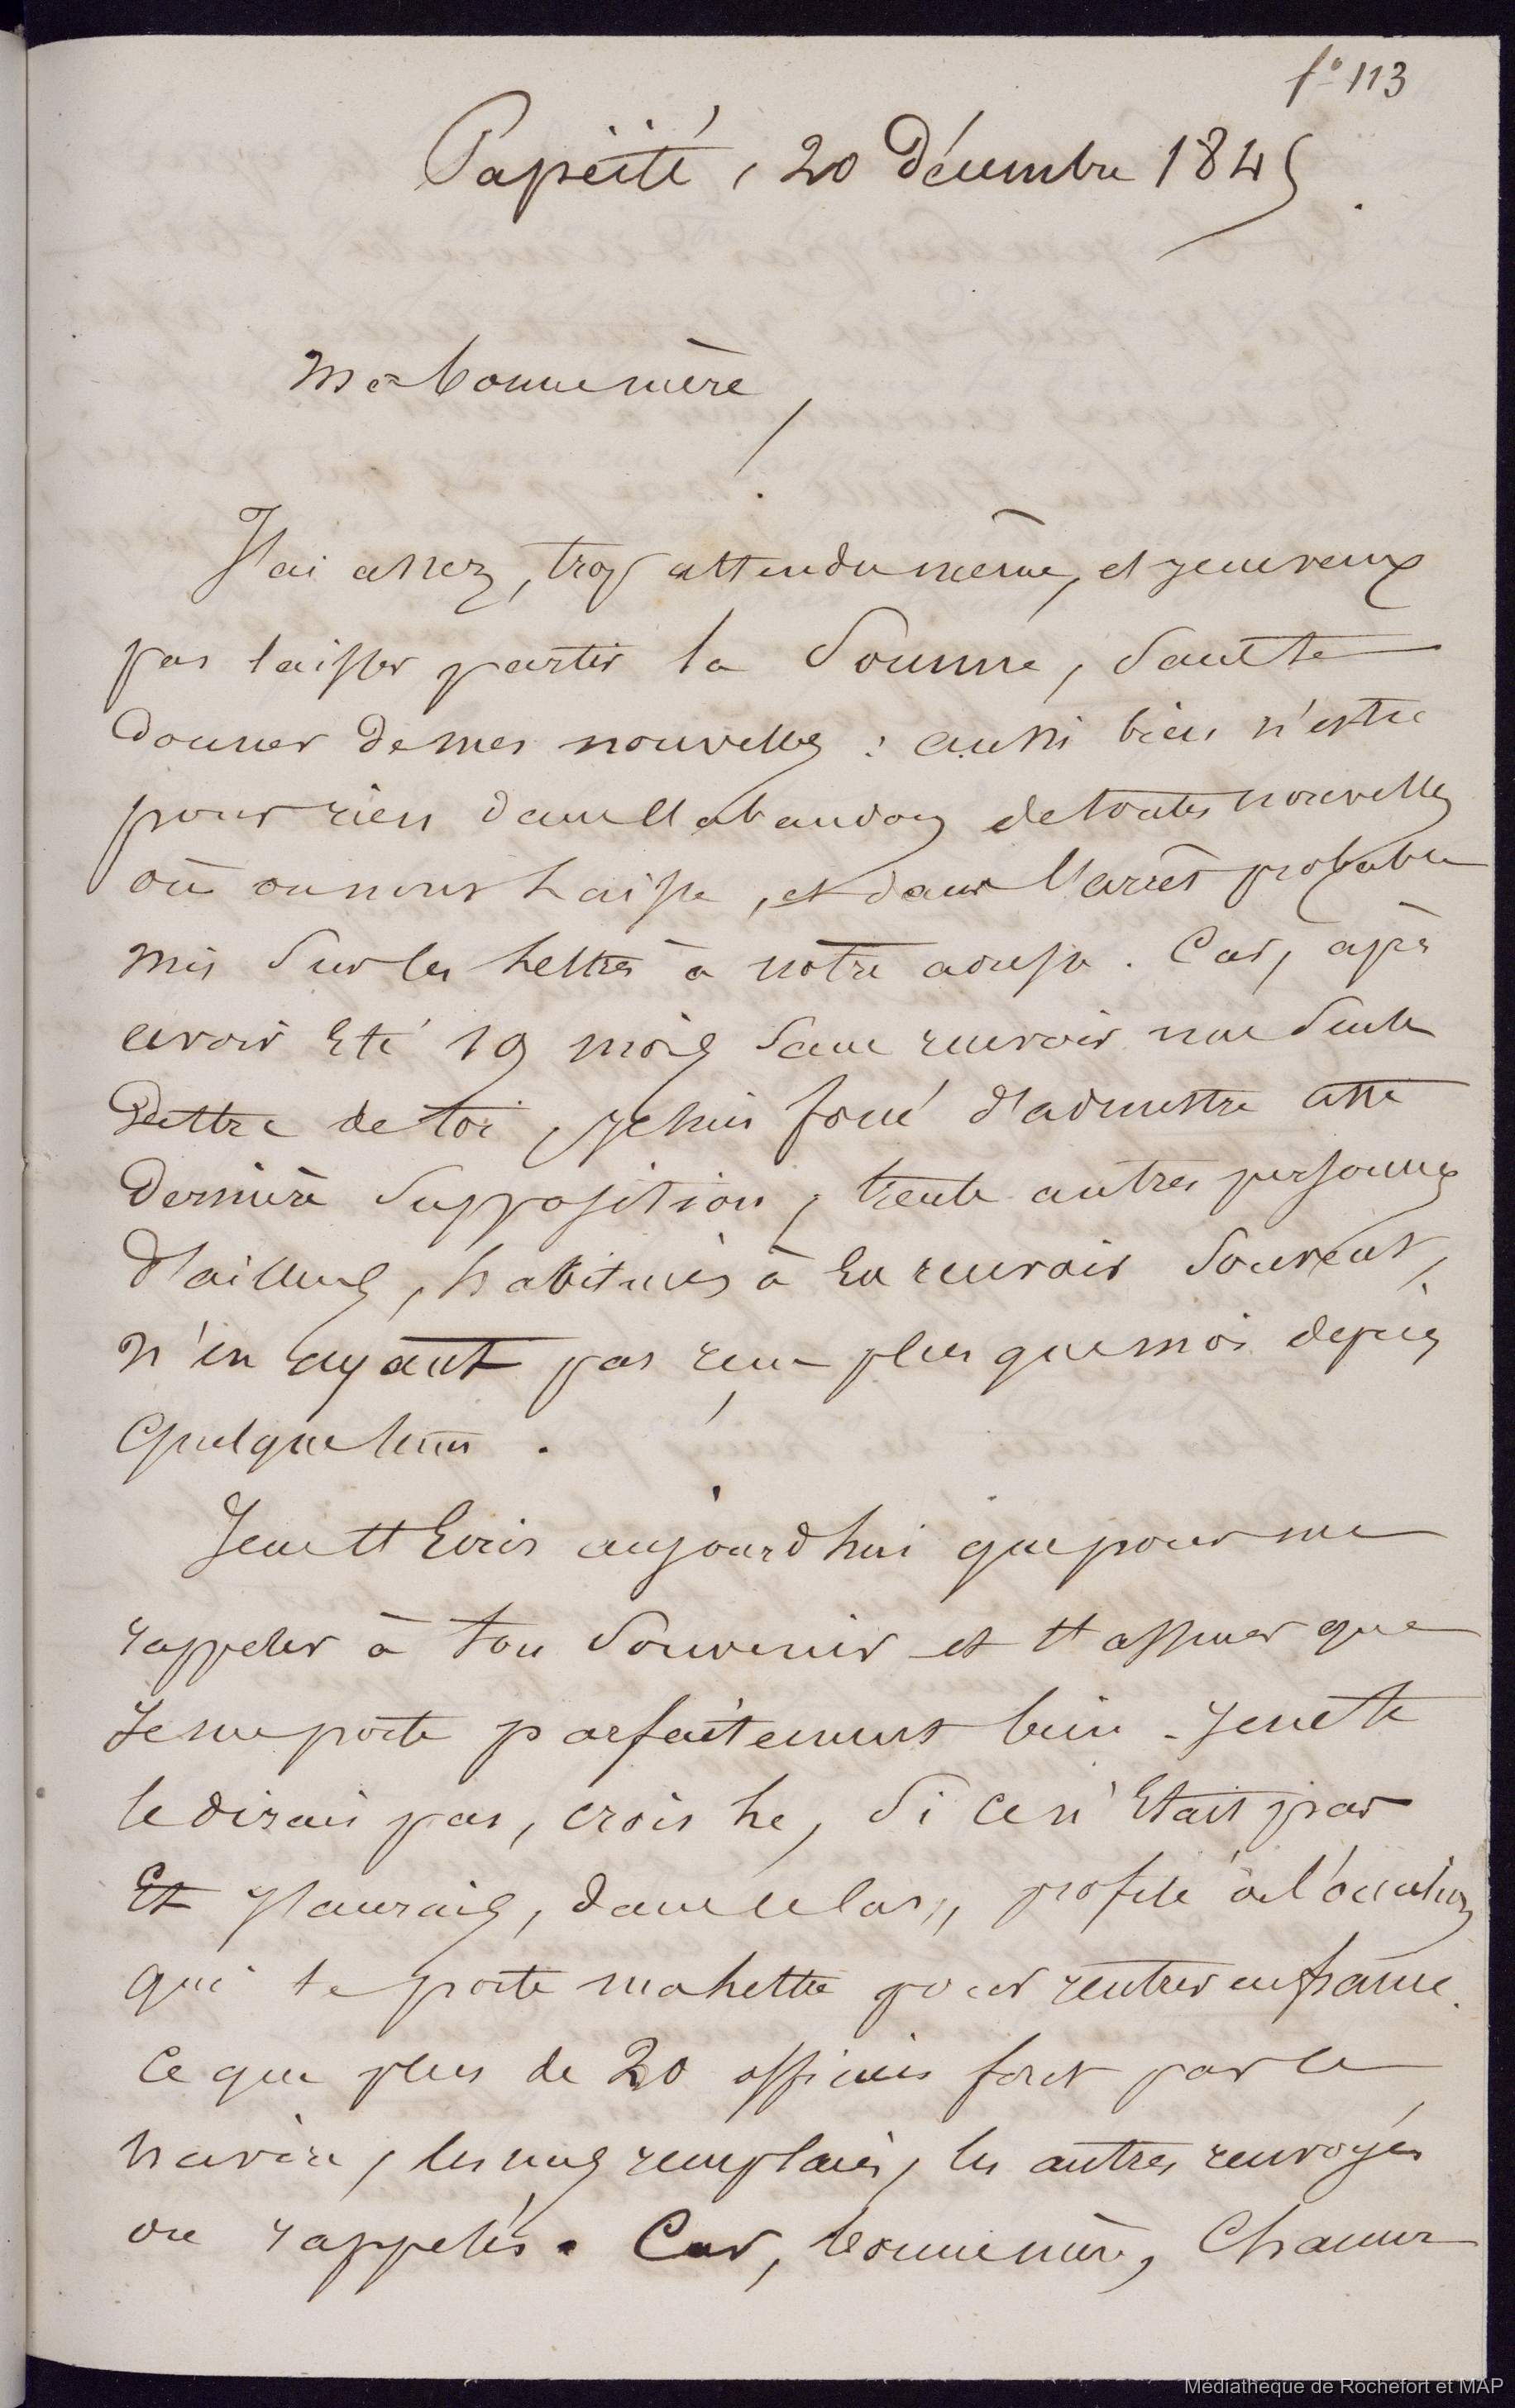 f° 113
Papéïté, 20 Décembre 1845.
Ma bonne mère,
J'ai assez, trop attendu même, et je ne veux
pas laisser partir la Somme, sans te
donner de mes nouvelles : aussi bien n'es tu
pour rien dans l'abandon de toutes nouvelles
où on nous laisse, et dans l'arrêt probable
mis sur les lettres à notre adresse. Car, après
avoir été 19 mois sans recevoir une seule
lettre de toi, je suis forcé d'admettre cette
dernière supposition, trente autres personnes
d'ailleurs, habituées à en recevoir souvent,
n'en ayant pas reçu plus que moi depuis
quelque tems.
Je ne t'écris aujourd'hui que pour me
rappeler à ton souvenir et t'assurer que
je me porte parfaitement bien. Je ne te
le dirais pas, crois le, si ce n'était pas
Et j'aurais, dans ce cas, profité de l'occasion
qui te porte ma lettre pour rentrer en france.
Ce que plus de 20 officiers font par ce
navire, les uns remplacés, les autres renvoyés
ou rappelés. Car, bonne mère, chacun
Médiathèque de Rochefort et MAP